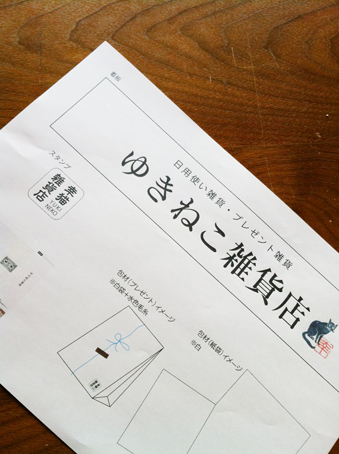 看板
日用使い雑貨・プレゼント雑貨
ゆきねこ雑貨店
スタンプ
幸猫
雑貨店
YUKI
NEKO
包材(プレゼント)イメージ
※白袋+水色毛糸
包材(紙袋)イメージ
※白